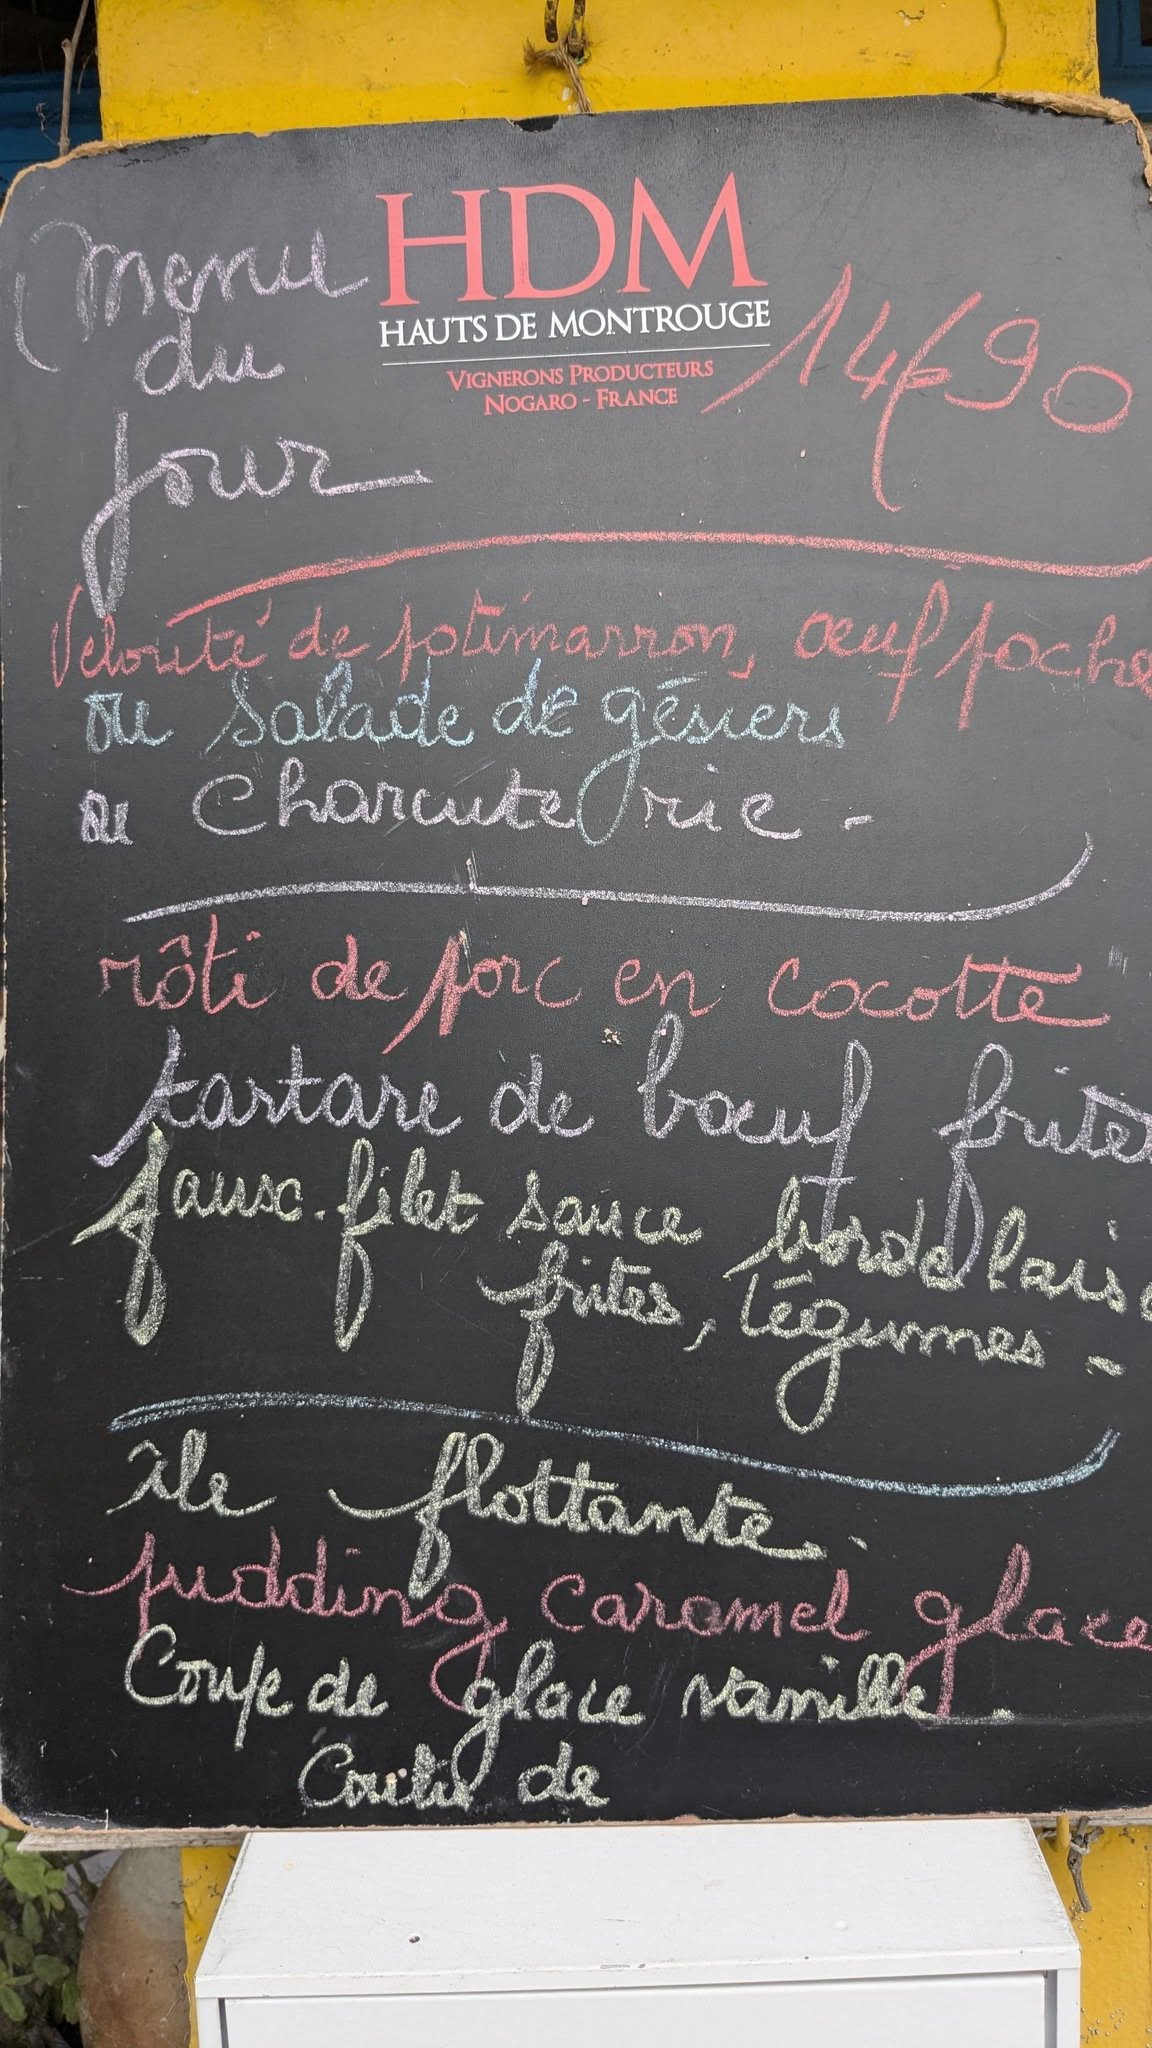 Menu
du
jour
HDM
HAUTS DE MONTROUGE
VIGNERONS PRODUCTEURS
NOGARO - FRANCE
14€90
Velouté de potimarron, œuf poché
ou Salade de gésiers
ou Charcuterie -
rôti de porc en cocotte
tartare de bœuf frites
faux-filet sauce bordelaise
frites, légumes -
île flottante.
pudding caramel glace
Coupe de glace vanille.
de